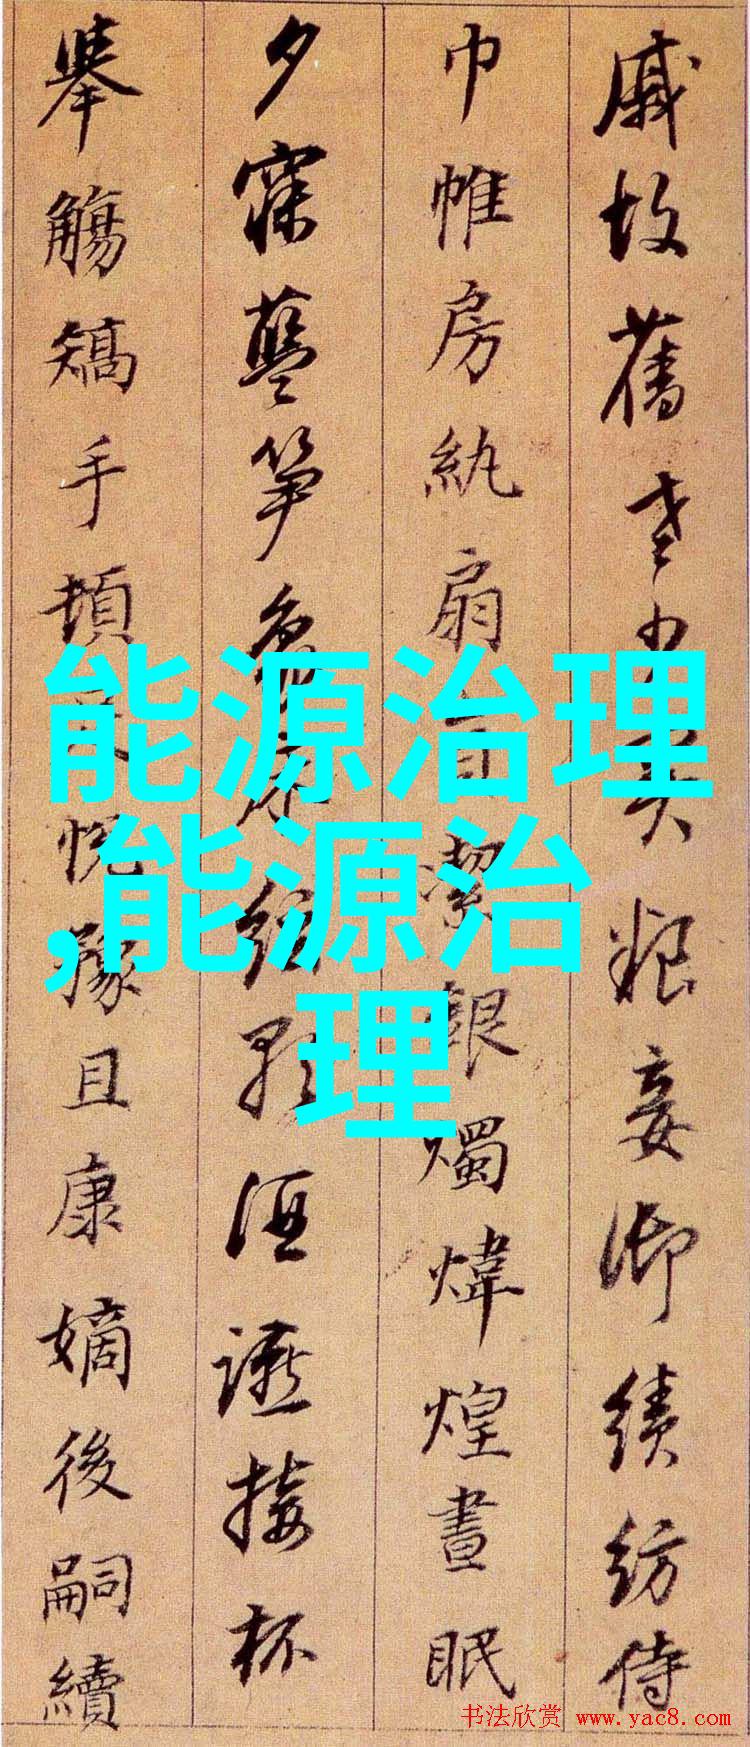 戚故舊老少異粮妾御績紡侍
巾帷房紈扇員潔銀燭煒煌晝眠
夕寐藍笋象床絃歌酒讌接杯
舉觴矯手頓足悅豫且康嫡後嗣續
能源治理
,能源治
理
书法欣赏 www.yac8.com